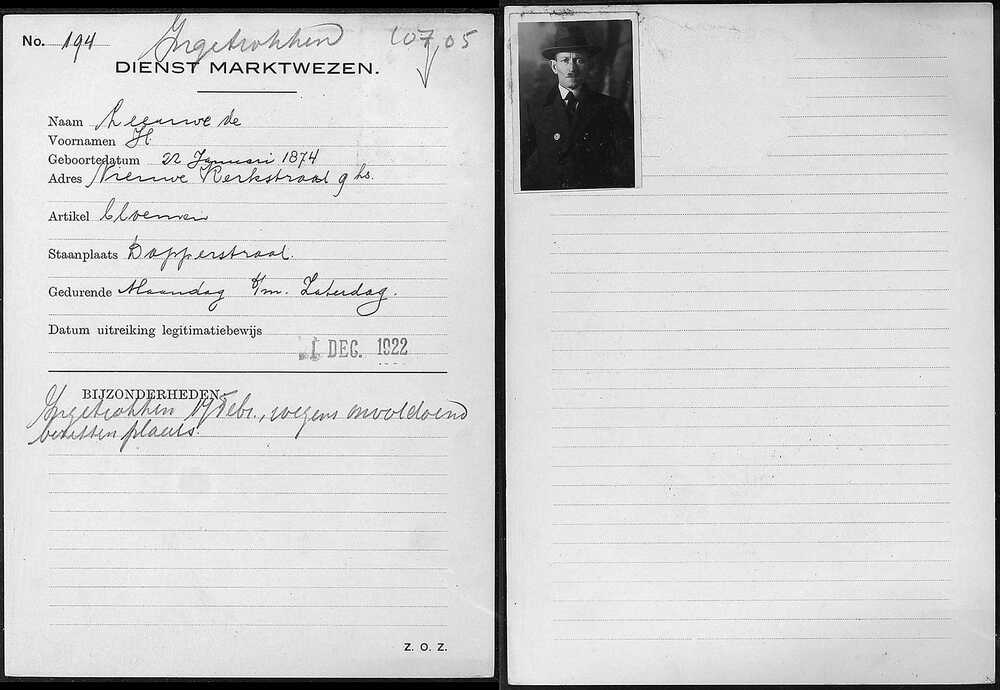 No. 194 Ingetrokken 107,05
DIENST MARKTWEZEN.
Naam Leeuwe de
Voornamen H.
Geboortedatum 22 Januari 1874
Adres Nieuwe Kerkstraat 9 hs.
Artikel bloemen
Staanplaats Dapperstraat.
Gedurende Maandag t/m. Zaterdag.
Datum uitreiking legitimatiebewijs
1 DEC. 1922
BIJZONDERHEDEN
Ingetrokken 19 Febr., wegens onvoldoend
bezetten plaats.
Z. O. Z.